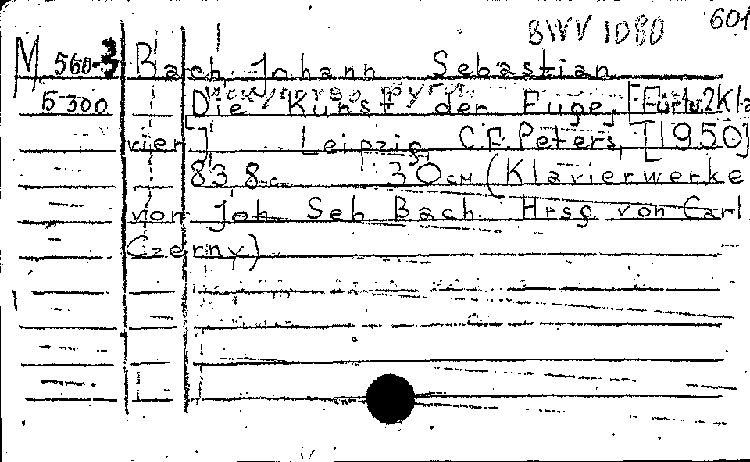 BWV 1080 601
M 560-3 Bach, Johann Sebastian
Б 300 Die Kunst der Fuge, [Für 2 Kla
vier], Leipzig, C.F. Peters, [1950]
83,8 с. 30 см (Klavierwerke
von Joh Seb Bach. Hrsg von Carl
Czerny)